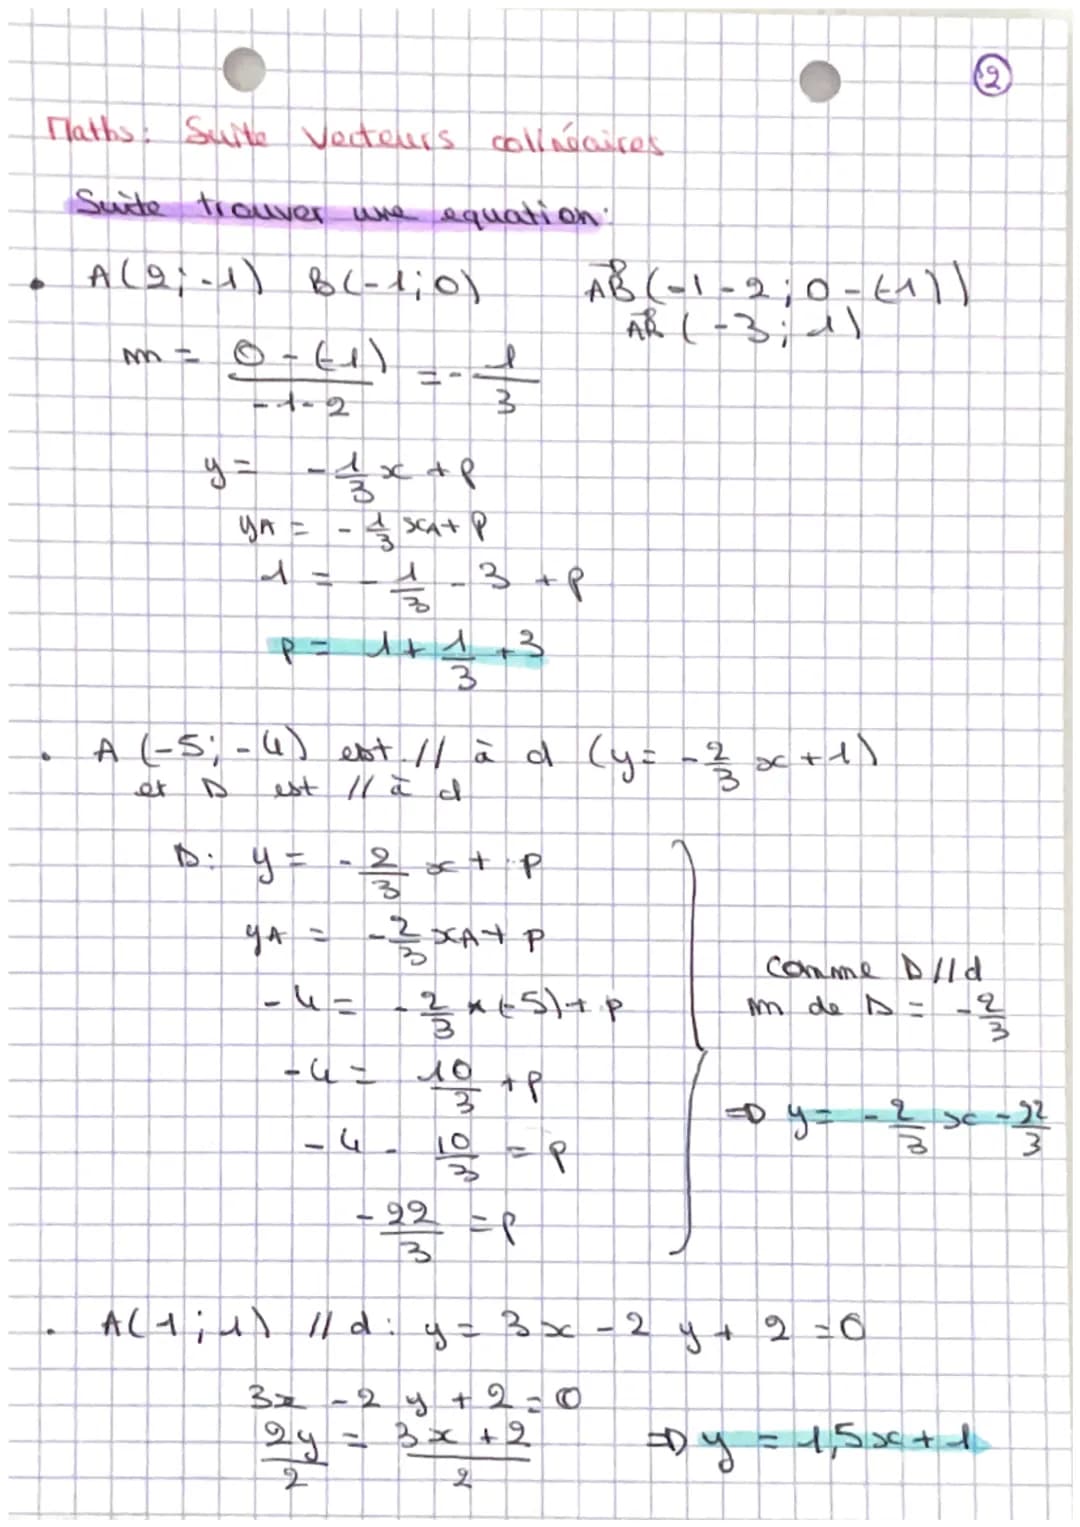 2
Maths: Suite Vecteurs colinéaires
Suite trouver une equation:
• A(2;-1) B(-1;0) AB(-1-2;0-(-1))
AB(-3;1)
m = 0-(-1) / -1-2 = -1/3
y = -1/3 x + p
yA = -1/3 xA + p
1 = -1/3 - 3 + p
p = 1 + 1/3 + 3
• A (-5;-4) est // à d (y = -2/3 x + 1)
et D est // à d
D: y = -2/3 x + p
yA = -2/3 xA + p
-4 = -2/3 × (-5) + p
-4 = 10/3 + p
-4 - 10/3 = p
-22/3 = p
comme D//d
m de D = -2/3
=> y = -2/3 x - 22/3
• A(1;1) // d: y = 3x - 2y + 2 = 0
3x - 2y + 2 = 0
2y/2 = 3x + 2 / 2 => y = 1,5x + 1